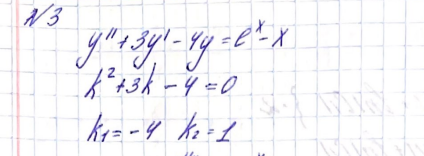 №3
y'' + 3y' - 4y = e^x - x
k² + 3k - 4 = 0
k₁ = -4 k₂ = 1